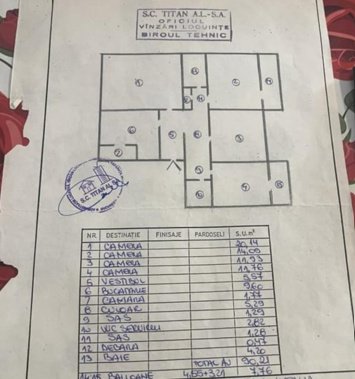 S.C. TITAN A.L.-S.A.
OFICIUL
VÎNZĂRI LOCUINŢE
BIROUL TEHNIC
S.C. TITAN AL SA
NR. DESTINAŢIE FINISAJE PARDOSELI S.U. m²
1 CAMERA 20,14
2 CAMERA 14,05
3 CAMERA 11,93
4 CAMERA 11,76
5 VESTIBUL 5,57
6 BUCATARIE 9,60
7 CAMARA 1,77
8 CULOAR 5,29
9 SAS 1,29
10 WC SERVICIU 2,82
11 SAS 1,28
12 DEBARA 0,47
13 BAIE 4,20
TOTAL AU 90,21
14,15 BALCOANE 4,55+3,21 7,76